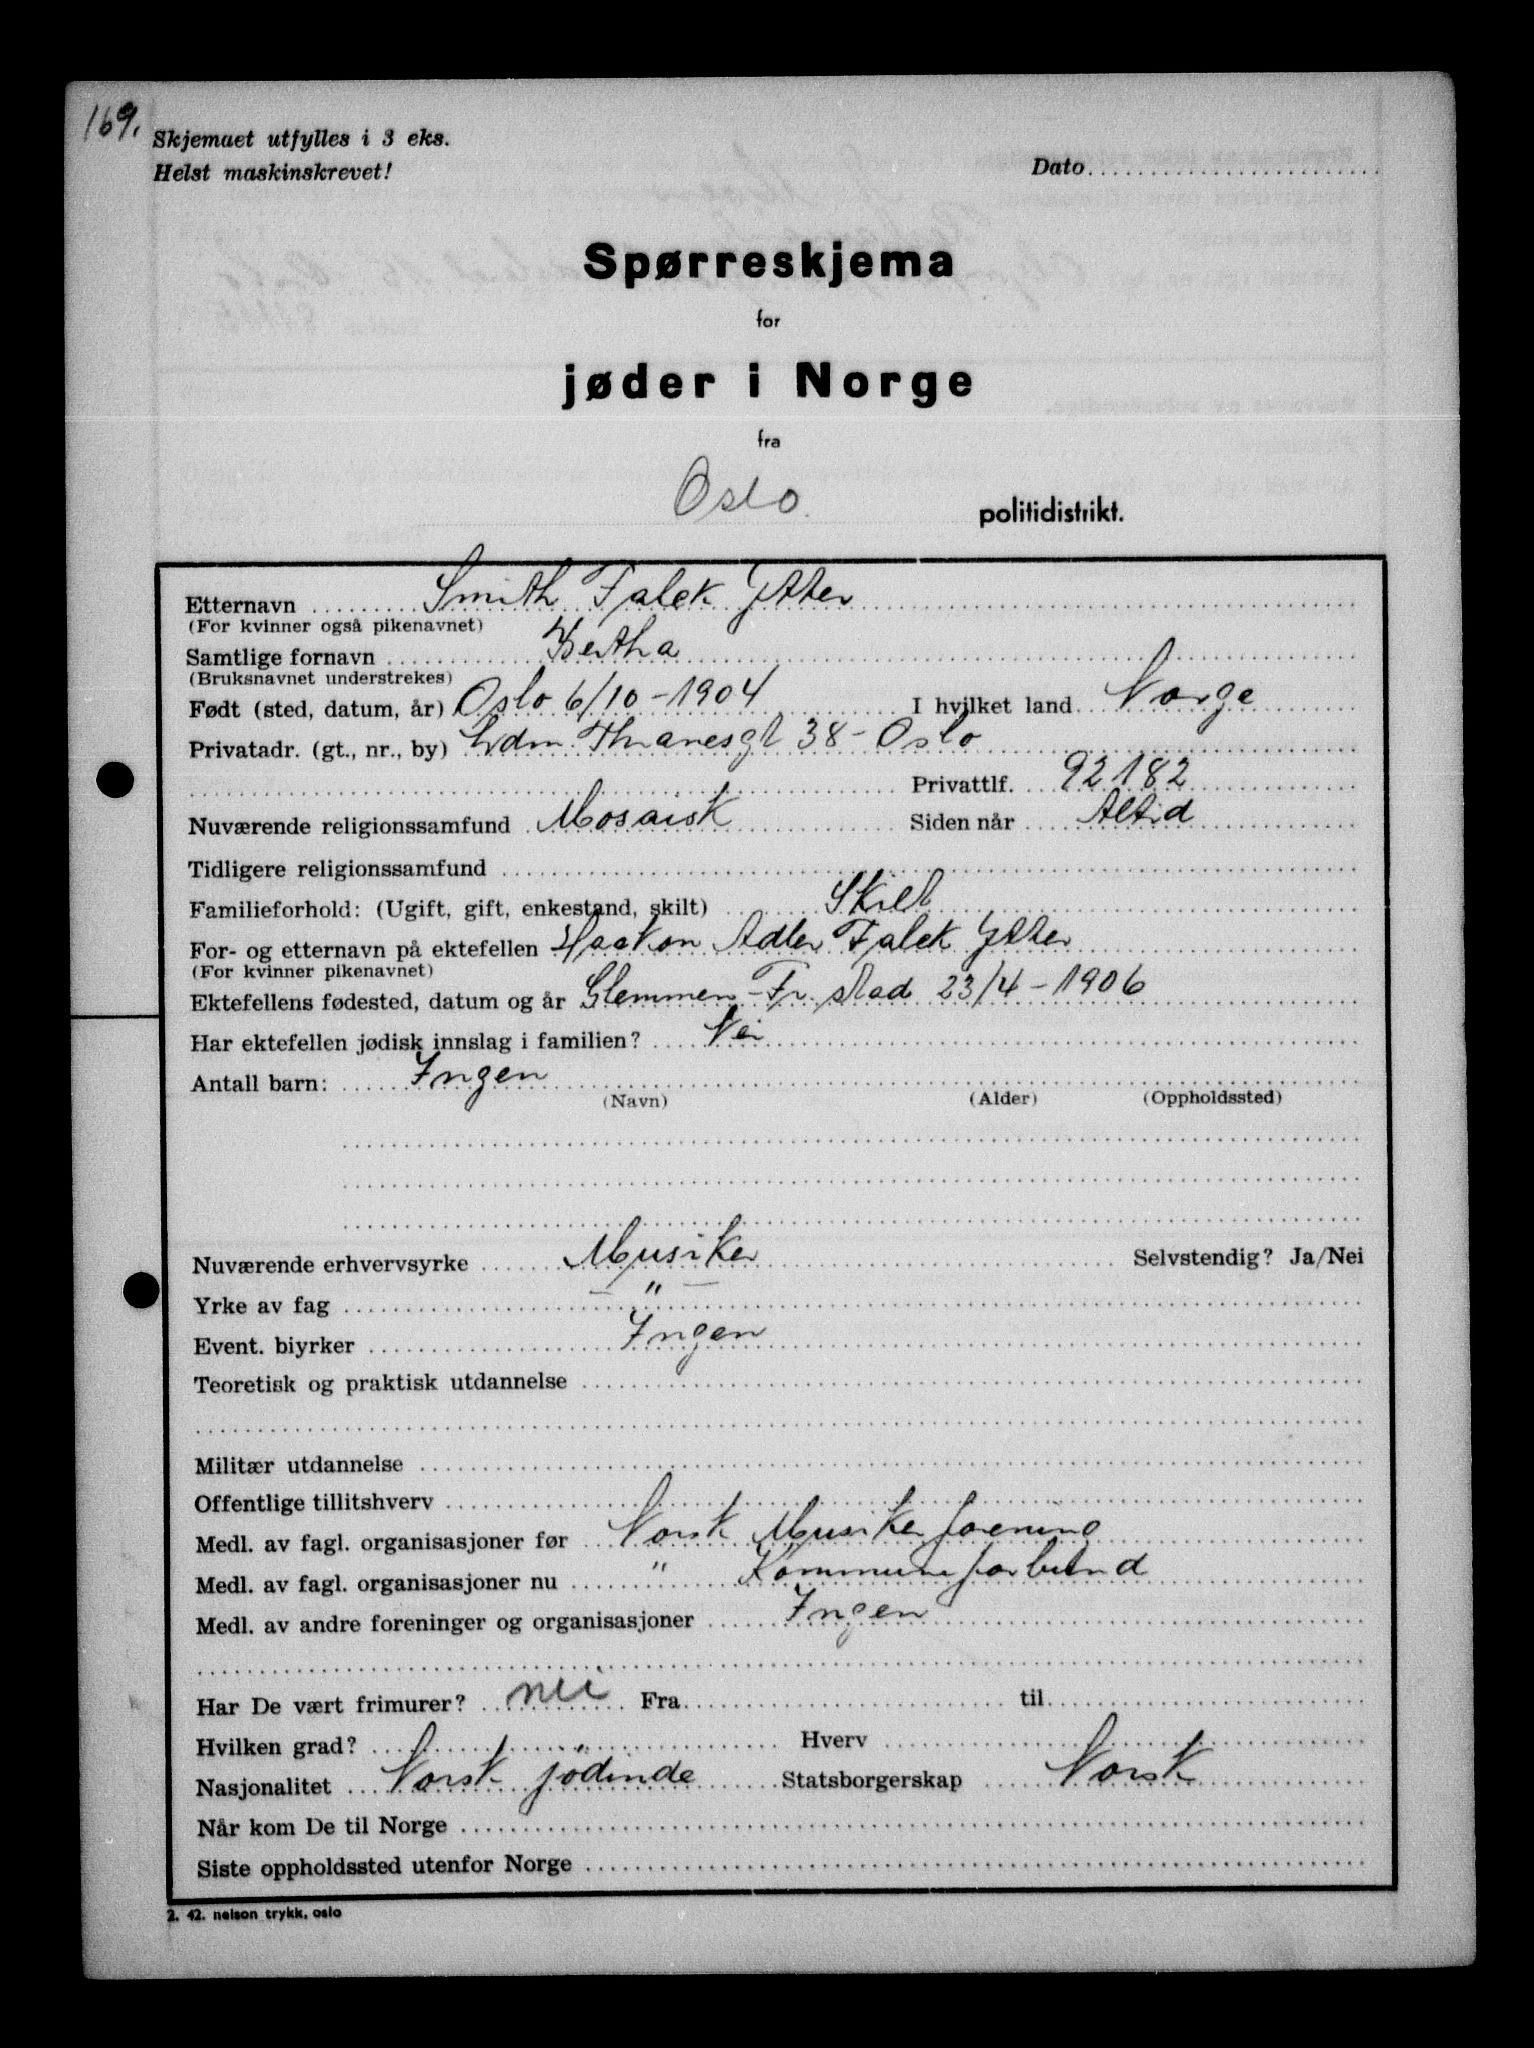 169.
Skjemaet utfylles i 3 eks.
Helst maskinskrevet!
Dato
Spørreskjema
for
jøder i Norge
fra
Oslo politidistrikt.
Etternavn Smith Falck Ytter
(For kvinner også pikenavnet)
Samtlige fornavn Bertha
(Bruksnavnet understrekes)
Født (sted, datum, år) Oslo 6/10-1904 I hvilket land Norge
Privatadr. (gt., nr., by) Edm. Thranesgt 38 - Oslo
Privattlf. 92182
Nuværende religionssamfund Mosaisk Siden når Altid
Tidligere religionssamfund
Familieforhold: (Ugift, gift, enkestand, skilt) Skilt
For- og etternavn på ektefellen Haakon Adler Falck Ytter
(For kvinner pikenavnet)
Ektefellens fødested, datum og år Glemmen - Fr.stad 23/4-1906
Har ektefellen jødisk innslag i familien? Nei
Antall barn: Ingen
(Navn) (Alder) (Oppholdssted)
Nuværende erhvervsyrke Musiker Selvstendig? Ja/Nei
Yrke av fag — " —
Event. biyrker Ingen
Teoretisk og praktisk utdannelse
Militær utdannelse
Offentlige tillitshverv
Medl. av fagl. organisasjoner før Norsk Musikerforening
Medl. av fagl. organisasjoner nu " Kommuneforbund
Medl. av andre foreninger og organisasjoner Ingen
Har De vært frimurer? nei Fra til
Hvilken grad? Hverv
Nasjonalitet Norsk jödinde Statsborgerskap Norsk
Når kom De til Norge
Siste oppholdssted utenfor Norge
2. 42. nelson trykk, oslo